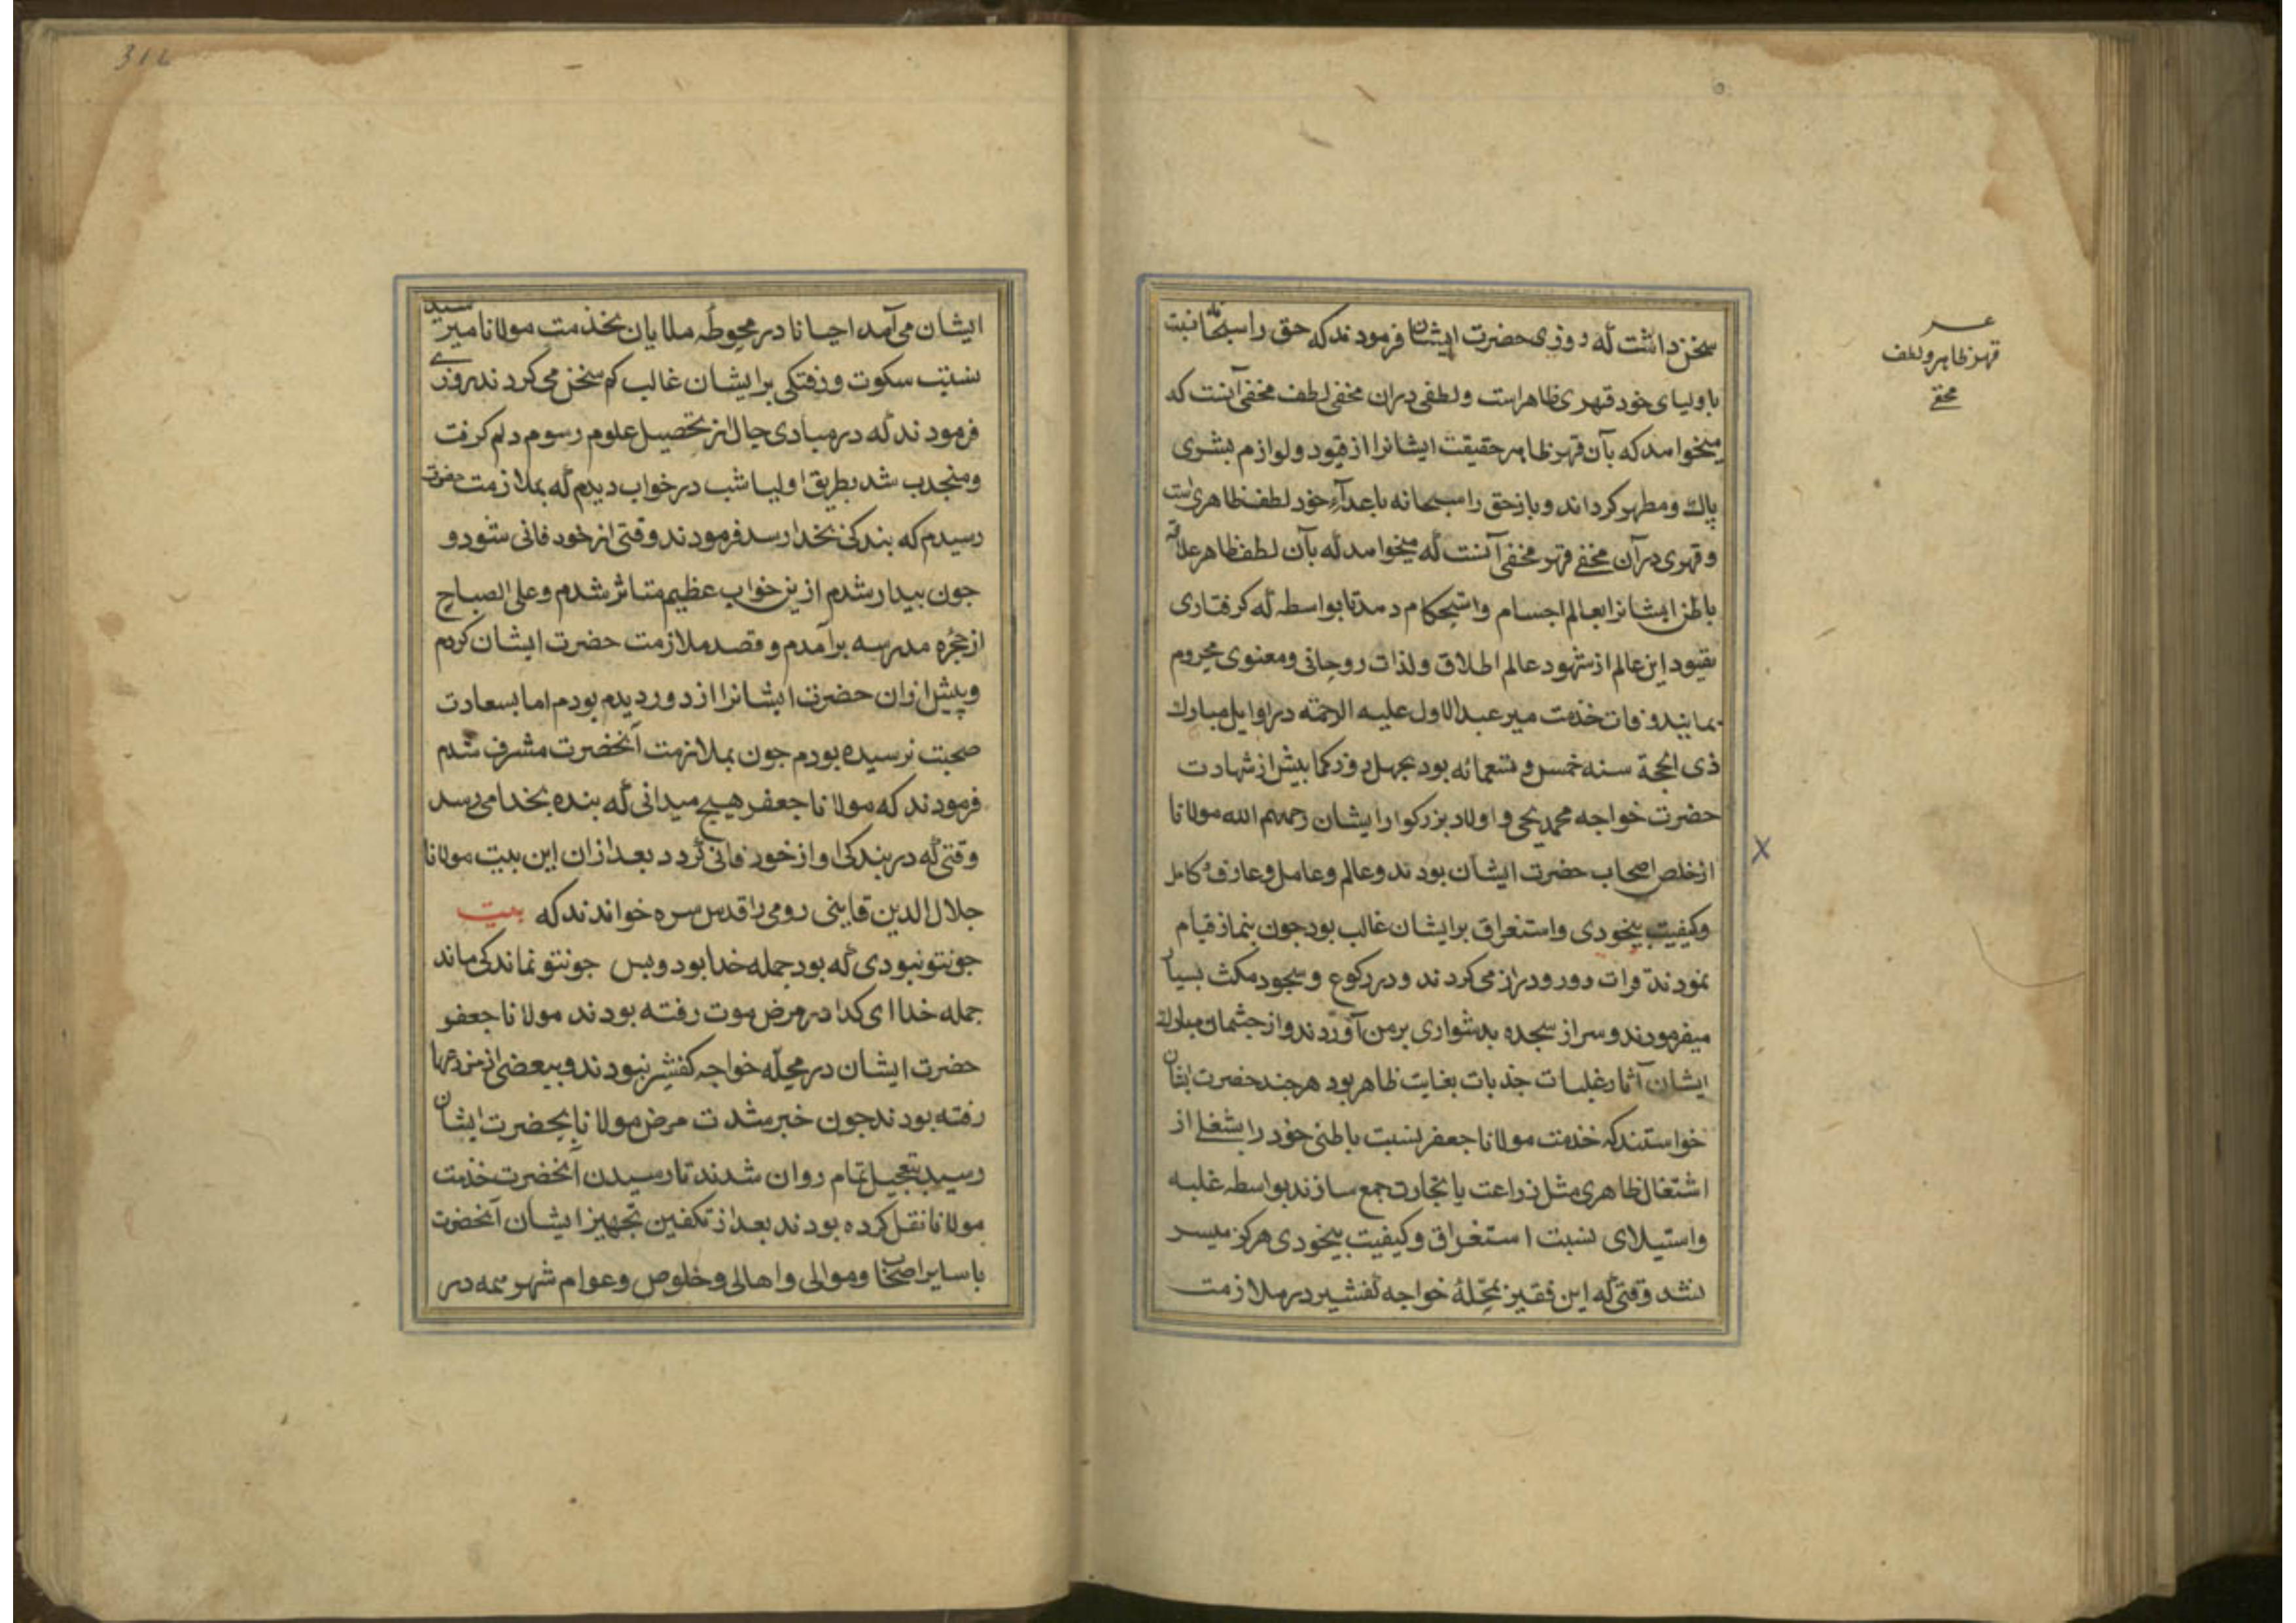 سخن داشت که روزی حضرت ایشان فرمودند که حق را سبحانه نسبت
باولیای خود قهری ظاهراست ولطفی دران مخفی لطف مخفی آنست که
میخواهد که بآن قهر ظاهر حقیقت ایشانرا از قیود ولوازم بشری
پاك ومطهر کرداند وباز حق را سبحانه باعدآء خود لطف ظاهری است
وقهری درآن مخفی قهر مخفی آنست که میخواهد که بآن لطف ظاهر علاقه
باطن ایشانرا بعالم اجسام واستحکام دهد تا بواسطه که کرفتاری
بقیود این عالم از شهود عالم اطلاق ولذات روحانی ومعنوی محروم
بمانند وفات خدمت میر عبدالاول علیه الرحمه در اوایل مبارك
ذی الحجة سنه خمس و تسعمائه بود بچهل روز کما بیش از شهادت
حضرت خواجه محمد یحیی و اولاد بزرکوار ایشان رحمهم الله مولانا
ازخلص اصحاب حضرت ایشان بودند وعالم وعامل وعارف کامل
وکیفیت بیخودی واستغراق برایشان غالب بود جون بنماز قیام
نمودند قرات دور ودراز می کردند ودر رکوع وسجود مکث بسیار
میفرمودند وسر از سجده بدشواری برمی آوردند واز جشمان مبارك
ایشان آثار غلبات جذبات بغایت ظاهر بود هرجند حضرت ایشان
خواستند که خدمت مولانا جعفر نسبت باطنی خود را بشغلی از
اشتغال ظاهری مثل زراعت یا تجارت جمع سازند بواسطه غلبه
واستیلای نسبت استغراق وکیفیت بیخودی هرکز میسر
نشد وقتی که این فقیر بمحلهٔ خواجه کفشیر در ملازمت
قهر ظاهر ولطف
مخفی
312
ایشان می آمد احیانا در محوطه ملایان بخدمت مولانا میرسید
نسبت سکوت ورفتکی برایشان غالب کم سخن می کردند روزی
فرمودند که در مبادی حال از تحصیل علوم رسوم دلم کرفت
ومنجذب شد بطریق اولیا شب در خواب دیدم که بملازمت حضرت
رسیدم که بندکی بخدا رسد فرمودند وقتی از خود فانی شود و
جون بیدار شدم از ین خواب عظیم متاثر شدم وعلی الصباح
از حجره مدرسه برآمدم و قصد ملازمت حضرت ایشان کردم
وپیش ازان حضرت ایشانرا از دور دیدم بودم اما بسعادت
صحبت نرسیده بودم جون بملازمت آنحضرت مشرف شدم
فرمودند که مولانا جعفر هیچ میدانی که بنده بخدا می رسد
وقتی که در بندکی او از خود فانی کردد بعد ازان این بیت مولانا
جلال الدین قاینی رومی را قدس سره خواندند که بیت
جونتو نبودی که بود جمله خدا بود وبس جونتو نماند کی ماند
جمله خدا ای کدا در مرض موت رفته بودند مولانا جعفر
حضرت ایشان در محله خواجه کفشیر نبودند و ببعضی از مزرعها
رفته بودند جون خبر شدت مرض مولانا بحضرت ایشان
رسید بتعجیل تمام روان شدند تا رسیدن آنحضرت خدمت
مولانا نقل کرده بودند بعد از تکفین تجهیز ایشان آنحضرت
با سایر اصحاب وموالی واهالی وخلوص وعوام شهر همه در